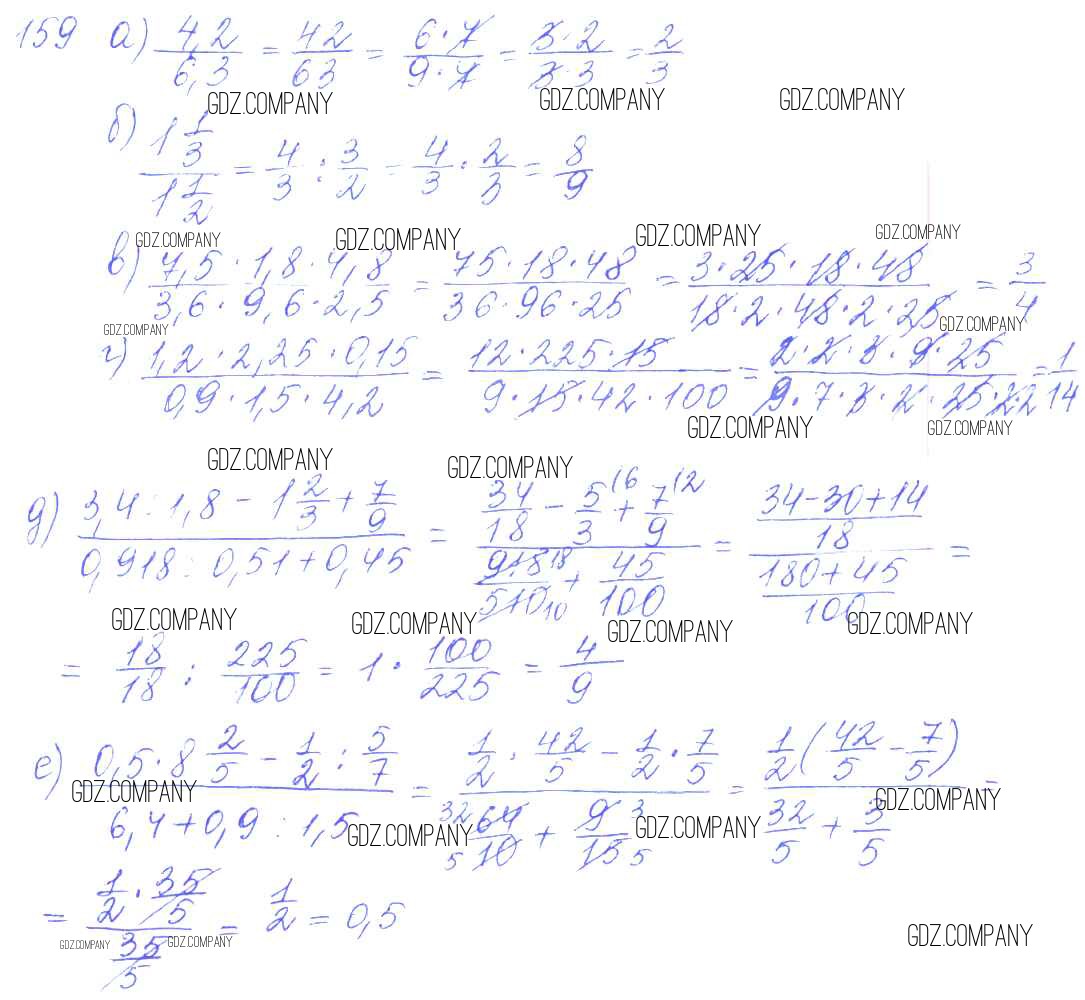 159 а) 4,2/6,3 = 42/63 = 6·7/9·7 = 3·2/3·3 = 2/3
GDZ.COMPANY GDZ.COMPANY GDZ.COMPANY
б) 1 1/3 / 1 1/2 = 4/3 : 3/2 = 4/3 · 2/3 = 8/9
GDZ.COMPANY GDZ.COMPANY GDZ.COMPANY GDZ.COMPANY
в) 7,5·1,8·4,8 / 3,6·9,6·2,5 = 75·18·48 / 36·96·25 = 3·25·18·48 / 18·2·48·2·25 = 3/4
GDZ.COMPANY GDZ.COMPANY
г) 1,2·2,25·0,15 / 0,9·1,5·4,2 = 12·225·15 / 9·15·42·100 = 2·2·3·9·25 / 9·7·3·2·25·2·2 = 1/14
GDZ.COMPANY GDZ.COMPANY
GDZ.COMPANY GDZ.COMPANY
д) 3,4 : 1,8 − 1 2/3 + 7/9 / 0,918 : 0,51 + 0,45 = 34/18 − 5/3 (6 + 7/9 (2 / 918 18/510 10 + 45/100 = 34−30+14/18 / 180+45/100 =
GDZ.COMPANY GDZ.COMPANY GDZ.COMPANY GDZ.COMPANY
= 18/18 : 225/100 = 1 · 100/225 = 4/9
е) 0,5·8 2/5 − 1/2 : 5/7 / 6,4+0,9 : 1,5 = 1/2 · 42/5 − 1/2 · 7/5 / 32 64/10 5 + 9 3/15 5 = 1/2 (42/5 − 7/5) / 32/5 + 3/5 =
GDZ.COMPANY GDZ.COMPANY
GDZ.COMPANY GDZ.COMPANY
= 1/2 · 35/5 / 35/5 = 1/2 = 0,5
GDZ.COMPANY GDZ.COMPANY GDZ.COMPANY